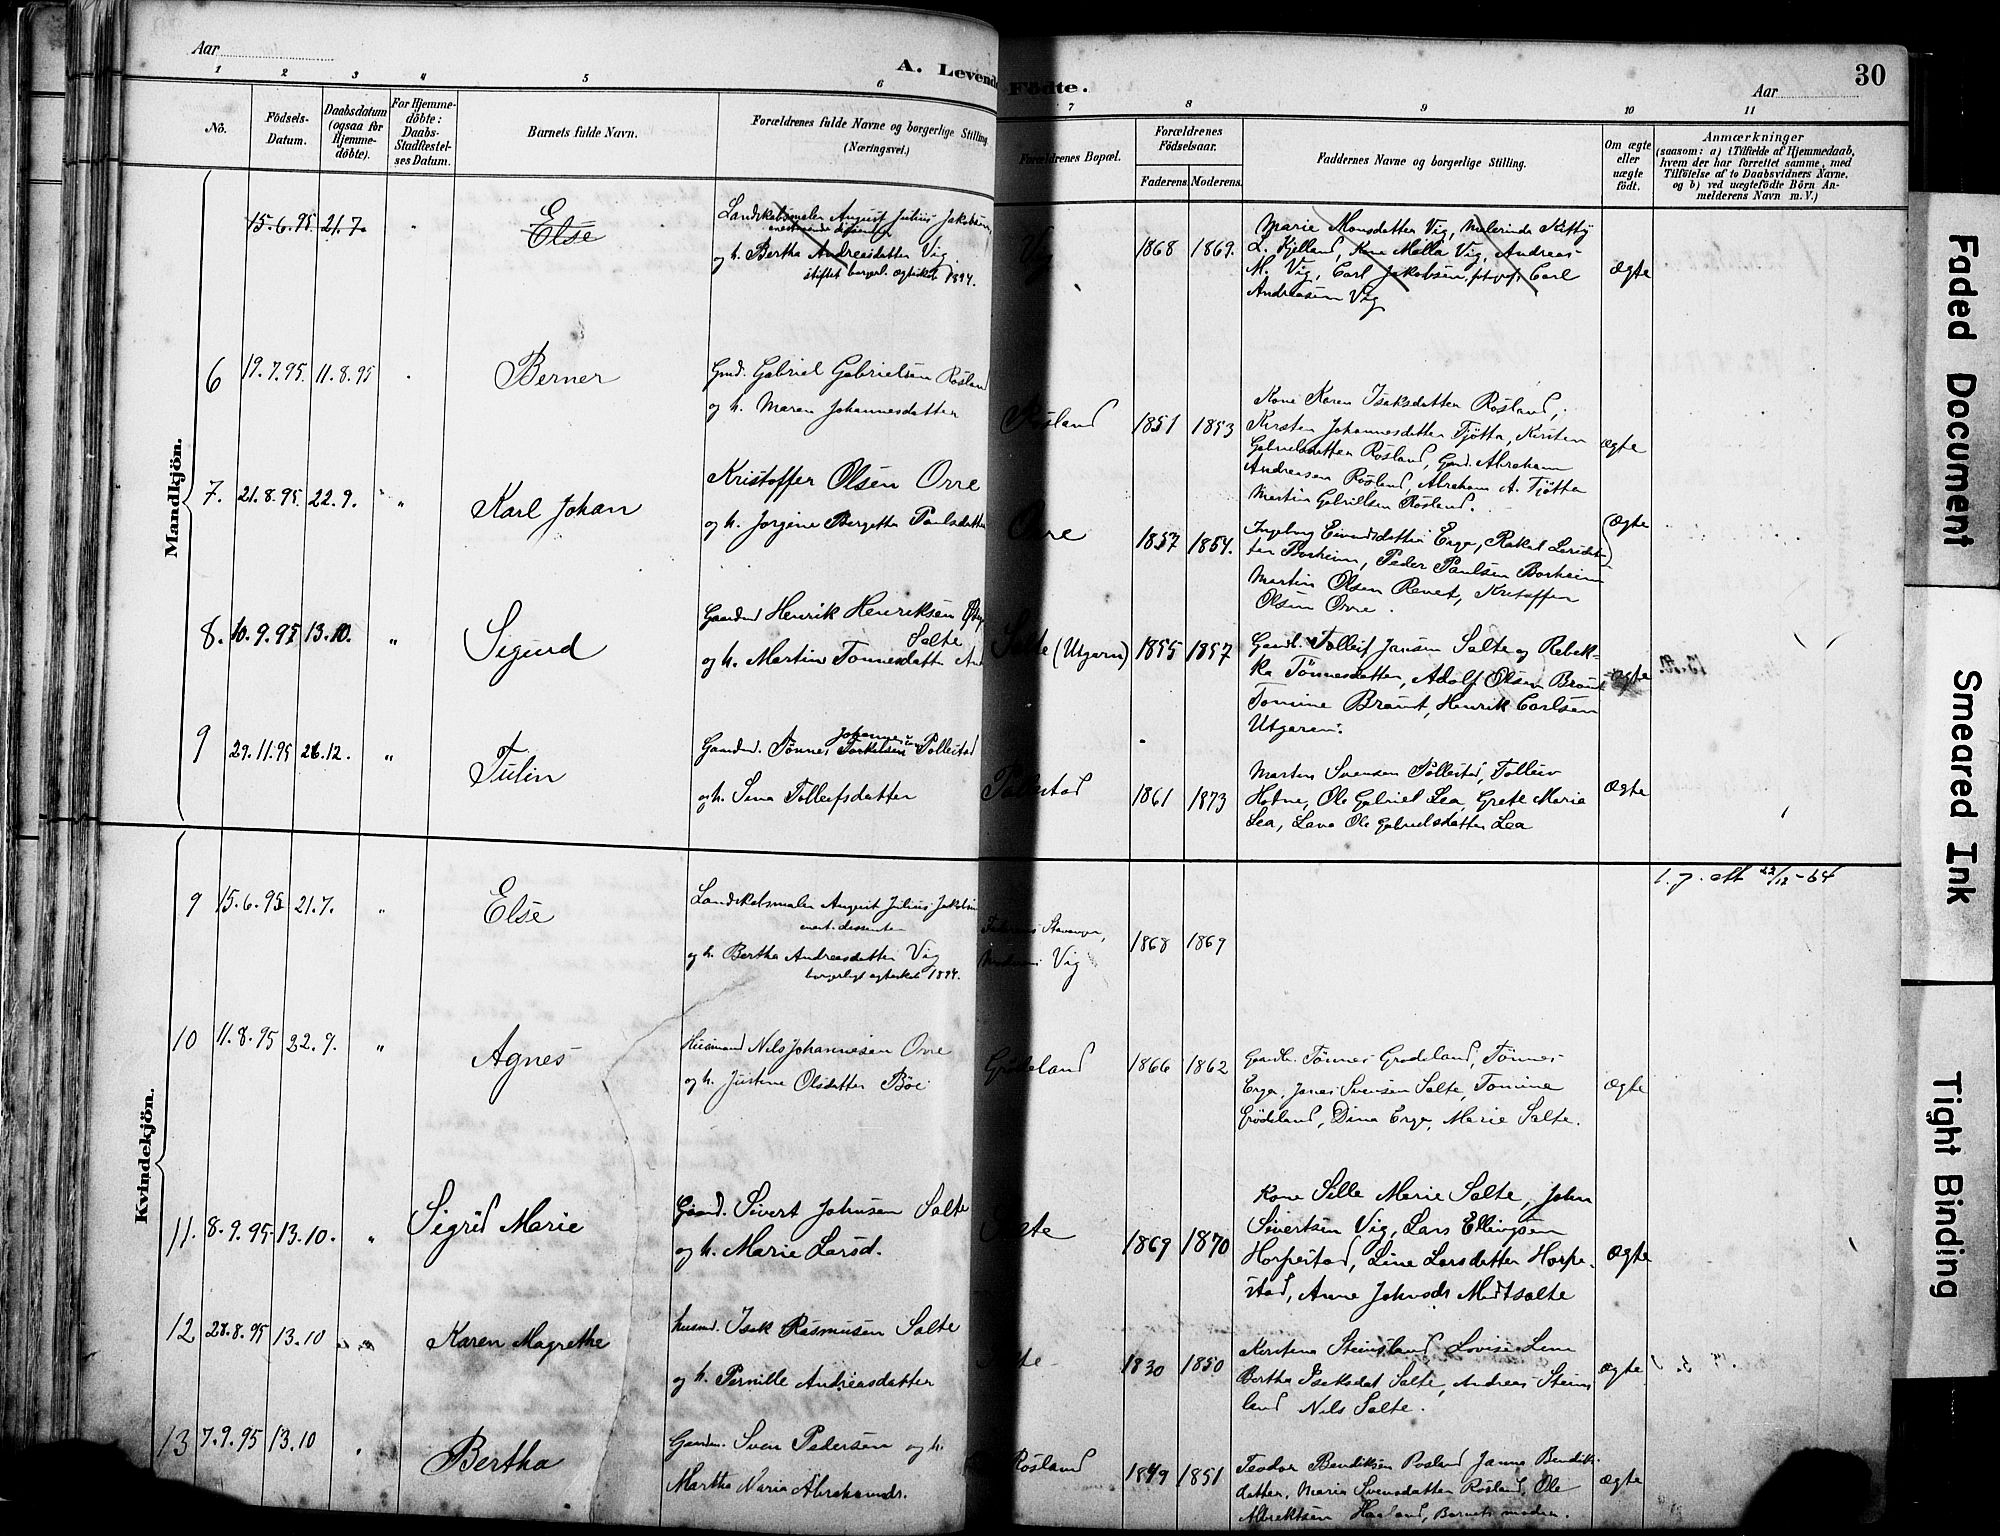 Aar
A. Levende Födte.
Aar
30
1 2 3 4 5 6 7 8 9 10 11
No.
Födsels-Datum.
Daabsdatum (ogsaa for Hjemme-döbte).
For Hjemme-döbte: Daabs-Stadfæstel-ses Datum.
Barnets fulde Navn.
Forældrenes fulde Navne og borgerlige Stilling (Næringsvei.)
Forældrenes Bopæl.
Forældrenes Födselsaar.
Faderens. Moderens.
Faddernes Navne og borgerlige Stilling.
Om ægte eller uægte födt.
Anmærkninger
(saasom: a) i Tilfælde af Hjemmedaab,
hvem der har forrettet samme, med
Tilföielse af to Daabsvidners Navne,
og b) ved uægtefödte Börn An-
melderens Navn m. V.)
Mandkjön.
15.6.95 21.7. Else
Landskabsmaler August Julius Jakobsen,
og h. Bertha Andreasdatter Vig
stiftet borgerl. ægteskab 1894.
Vig 1868 1869.
Marie Monsdatter Vig, Malerinde Kitty
L. Kjelland, Kone Malla Vig, Andreas
M. Vig, Carl Jakobsen, fotograf, Carl
Andreasen Vig
Ægte
6 19.7.95. 11.8.95 Berner
Gmd. Gabriel Gabrielsen Rosland
og h. Maren Johannesdatter
Rosland 1851 1853
Kone Karen Isaksdatter Rosland,
Kirsten Johannesdatter Tjötta, Kirsten
Gabrielsdatter Rosland, Gmd. Abraham
Andreasen Rosland, Abraham A. Tjötta
Martin Gabrielsen Rosland.
Ægte
7. 21.8.95 22.9. " Karl Johan
Kristoffer Olsen Orre
og h. Jorgine Bergetta Paulsdatter
Orre 1857 1854.
Ingeborg Eivindsdatter Erga, Rakel
Borheim, Peder Paulsen Borheim
Martin Olsen Revet, Kristoffer
Olsen Orre.
Ægte
8. 10.9.95 13.10. " Sigurd
Gaardmd Henrik Henriksen
Salte
og h. Martine Tonnesdatter
Salte (Utgaren) 1855 1857
Gaardb. Tolleif Jansen Salte og Rebek-
ka Tönnesdatter, Adolf Olsen Braut
Tomine Braut, Henrik Carlsen
Utgaren.
Ægte
13.10.
9 29.11.95 26.12. " Tulin
Gaardmd. Tönnes Torkelsen Tollestad
og h. Sina Tolleifsdatter
Tollestad 1861 1873
Martin Svensen Tollestad, Tolleiv
Hotne, Ole Gabriel Lea, Grete Marie
Lea, Lava Ole Gabrielsdatter Lea
Ægte
Kvindekjön.
9 15.6.95 21.7. " Else
Landskabsmaler August Julius Jakobsen
og h. Bertha Andreasdatter Vig
borgerligt ægteskab 1894.
Faderens Stavanger,
Moderens Vig
1868 1869
l. j. att 22/12-64
10 11.8.95 22.9. " Agnes
Husmand Nils Johannesen Orre
og h. Justine Olsdatter Böe
Grödeland 1866 1862
Gaardb. Tönnes Grodeland, Tönnes
Erga, Janes Svensen Salte, Tomine
Grödeland, Dina Erga, Marie Salte.
Ægte
11. 8.9.95 13.10. " Sigrid Marie
Gaard. Sivert Johnsen Salte
og h. Marie Larsd.
Salte 1869 1870
Kone Sille Marie Salte, John
Sivertsen Vig, Lars Ellingsen
Horpestad, Line Larsdatter Horpe-
stad, Anne Johnsdt Midtsalte
Ægte
12 28.8.95 13.10 " Karen Magrethe
husmd. Isak Rasmusen Salte
og h. Pernille Andreasdatter
Salte 1830 1850
Kirstena Steinsland Lovise Line
Bertha Isaksdat Salte, Andreas Steins
land Nils Salte.
Ægte
13 7.9.95 13.10 Bertha
Gaardm. Sven Pedersen og h.
Martha Maria Abrahamdr.
Rosland 1849 1851
Teodor Bendiksen Rosland Janna Bendiks
datter, Maria Svensdatter Rosland, Ole
Albrektsen Haaland, Barnets moder.
Ægte
Faded Document
Smeared Ink
Tight Binding